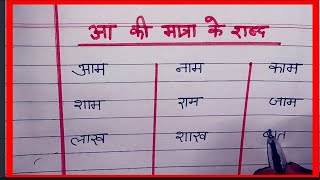 आ की मात्रा के शब्द
आम नाम काम
शाम राम जाम
लाख शाख